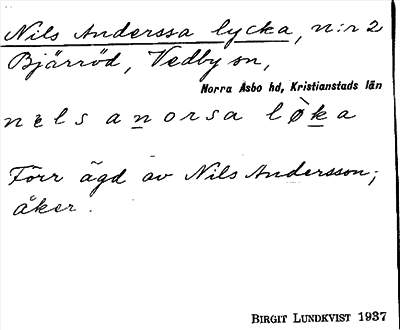 Nils Anderssa lycka, n:r 2
Bjärröd, Vedby sn,
Norra Åsbo hd, Kristianstads län
nels anorsa lø̀ka
Förr ägd av Nils Andersson;
åker.
BIRGIT LUNDKVIST 1937